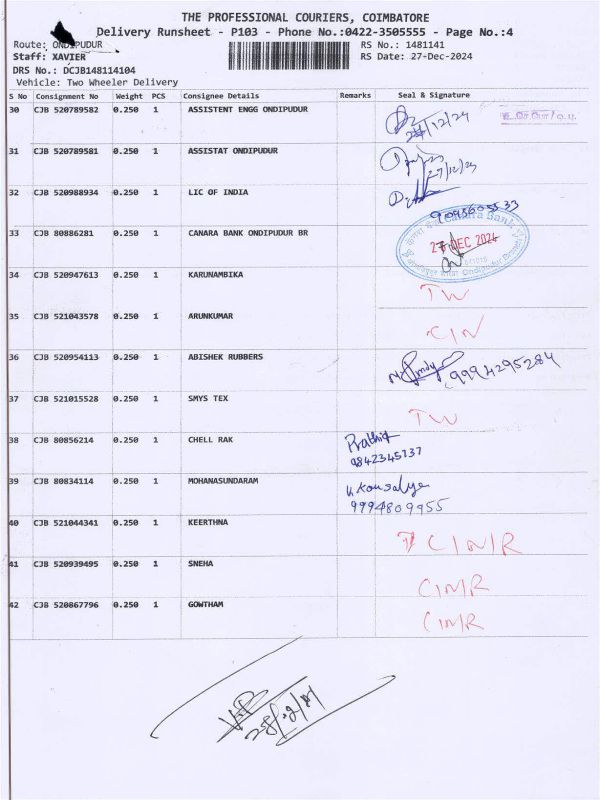 THE PROFESSIONAL COURIERS, COIMBATORE
Delivery Runsheet - P103 - Phone No.:0422-3505555 - Page No.:4
Route: ONDIPUDUR RS No.: 1481141
Staff: XAVIER RS Date: 27-Dec-2024
DRS No.: DCJB148114104
Vehicle: Two Wheeler Delivery
S No Consignment No Weight PCS Consignee Details Remarks Seal & Signature
30 CJB 520789582 0.250 1 ASSISTENT ENGG ONDIPUDUR
31 CJB 520789581 0.250 1 ASSISTAT ONDIPUDUR 27/12/24
32 CJB 520988934 0.250 1 LIC OF INDIA
33 CJB 80886281 0.250 1 CANARA BANK ONDIPUDUR BR Canara Bank 27 DEC 2024 Ondipudur
34 CJB 520947613 0.250 1 KARUNAMBIKA TW
35 CJB 521043578 0.250 1 ARUNKUMAR C/N
36 CJB 520954113 0.250 1 ABISHEK RUBBERS 9994295284
37 CJB 521015528 0.250 1 SMYS TEX TW
38 CJB 80856214 0.250 1 CHELL RAK Prathia
9842345737
39 CJB 80834114 0.250 1 MOHANASUNDARAM U Kousalya
9994809955
40 CJB 521044341 0.250 1 KEERTHNA C/N/R
41 CJB 520939495 0.250 1 SNEHA C/N/R
42 CJB 520867796 0.250 1 GOWTHAM C/N/R